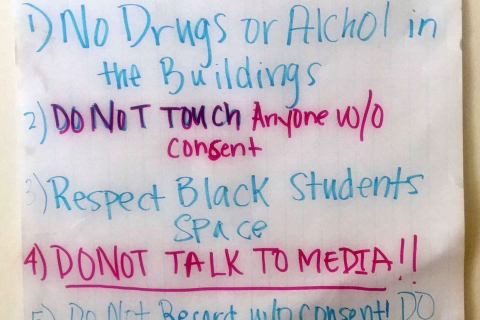 1) No Drugs or Alchol in
the Buildings
2) DO NOT TOUCH Anyone w/o
consent
3) Respect Black Students
Space
4) DO NOT TALK TO MEDIA!!
5) Do Not Record w/o consent! DO